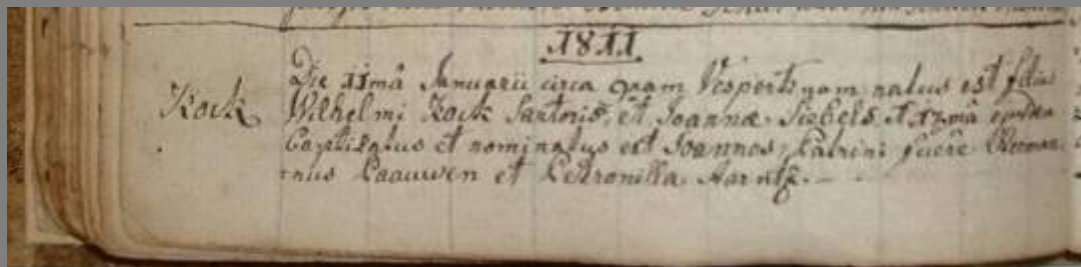 1811
Kock
Die 11mâ Januarii circa 9nam Vespertinam natus est filius
Wilhelmi Kock Sartoris, et Joannæ Siebels, et 12mâ ejusdem
Baptizatus et nominatus est Joannes, Patrini fuêre Herman
nus Paauwen et Petronilla Harntz.